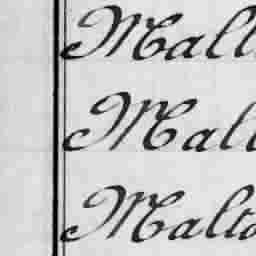 Malt
Malt
Malta